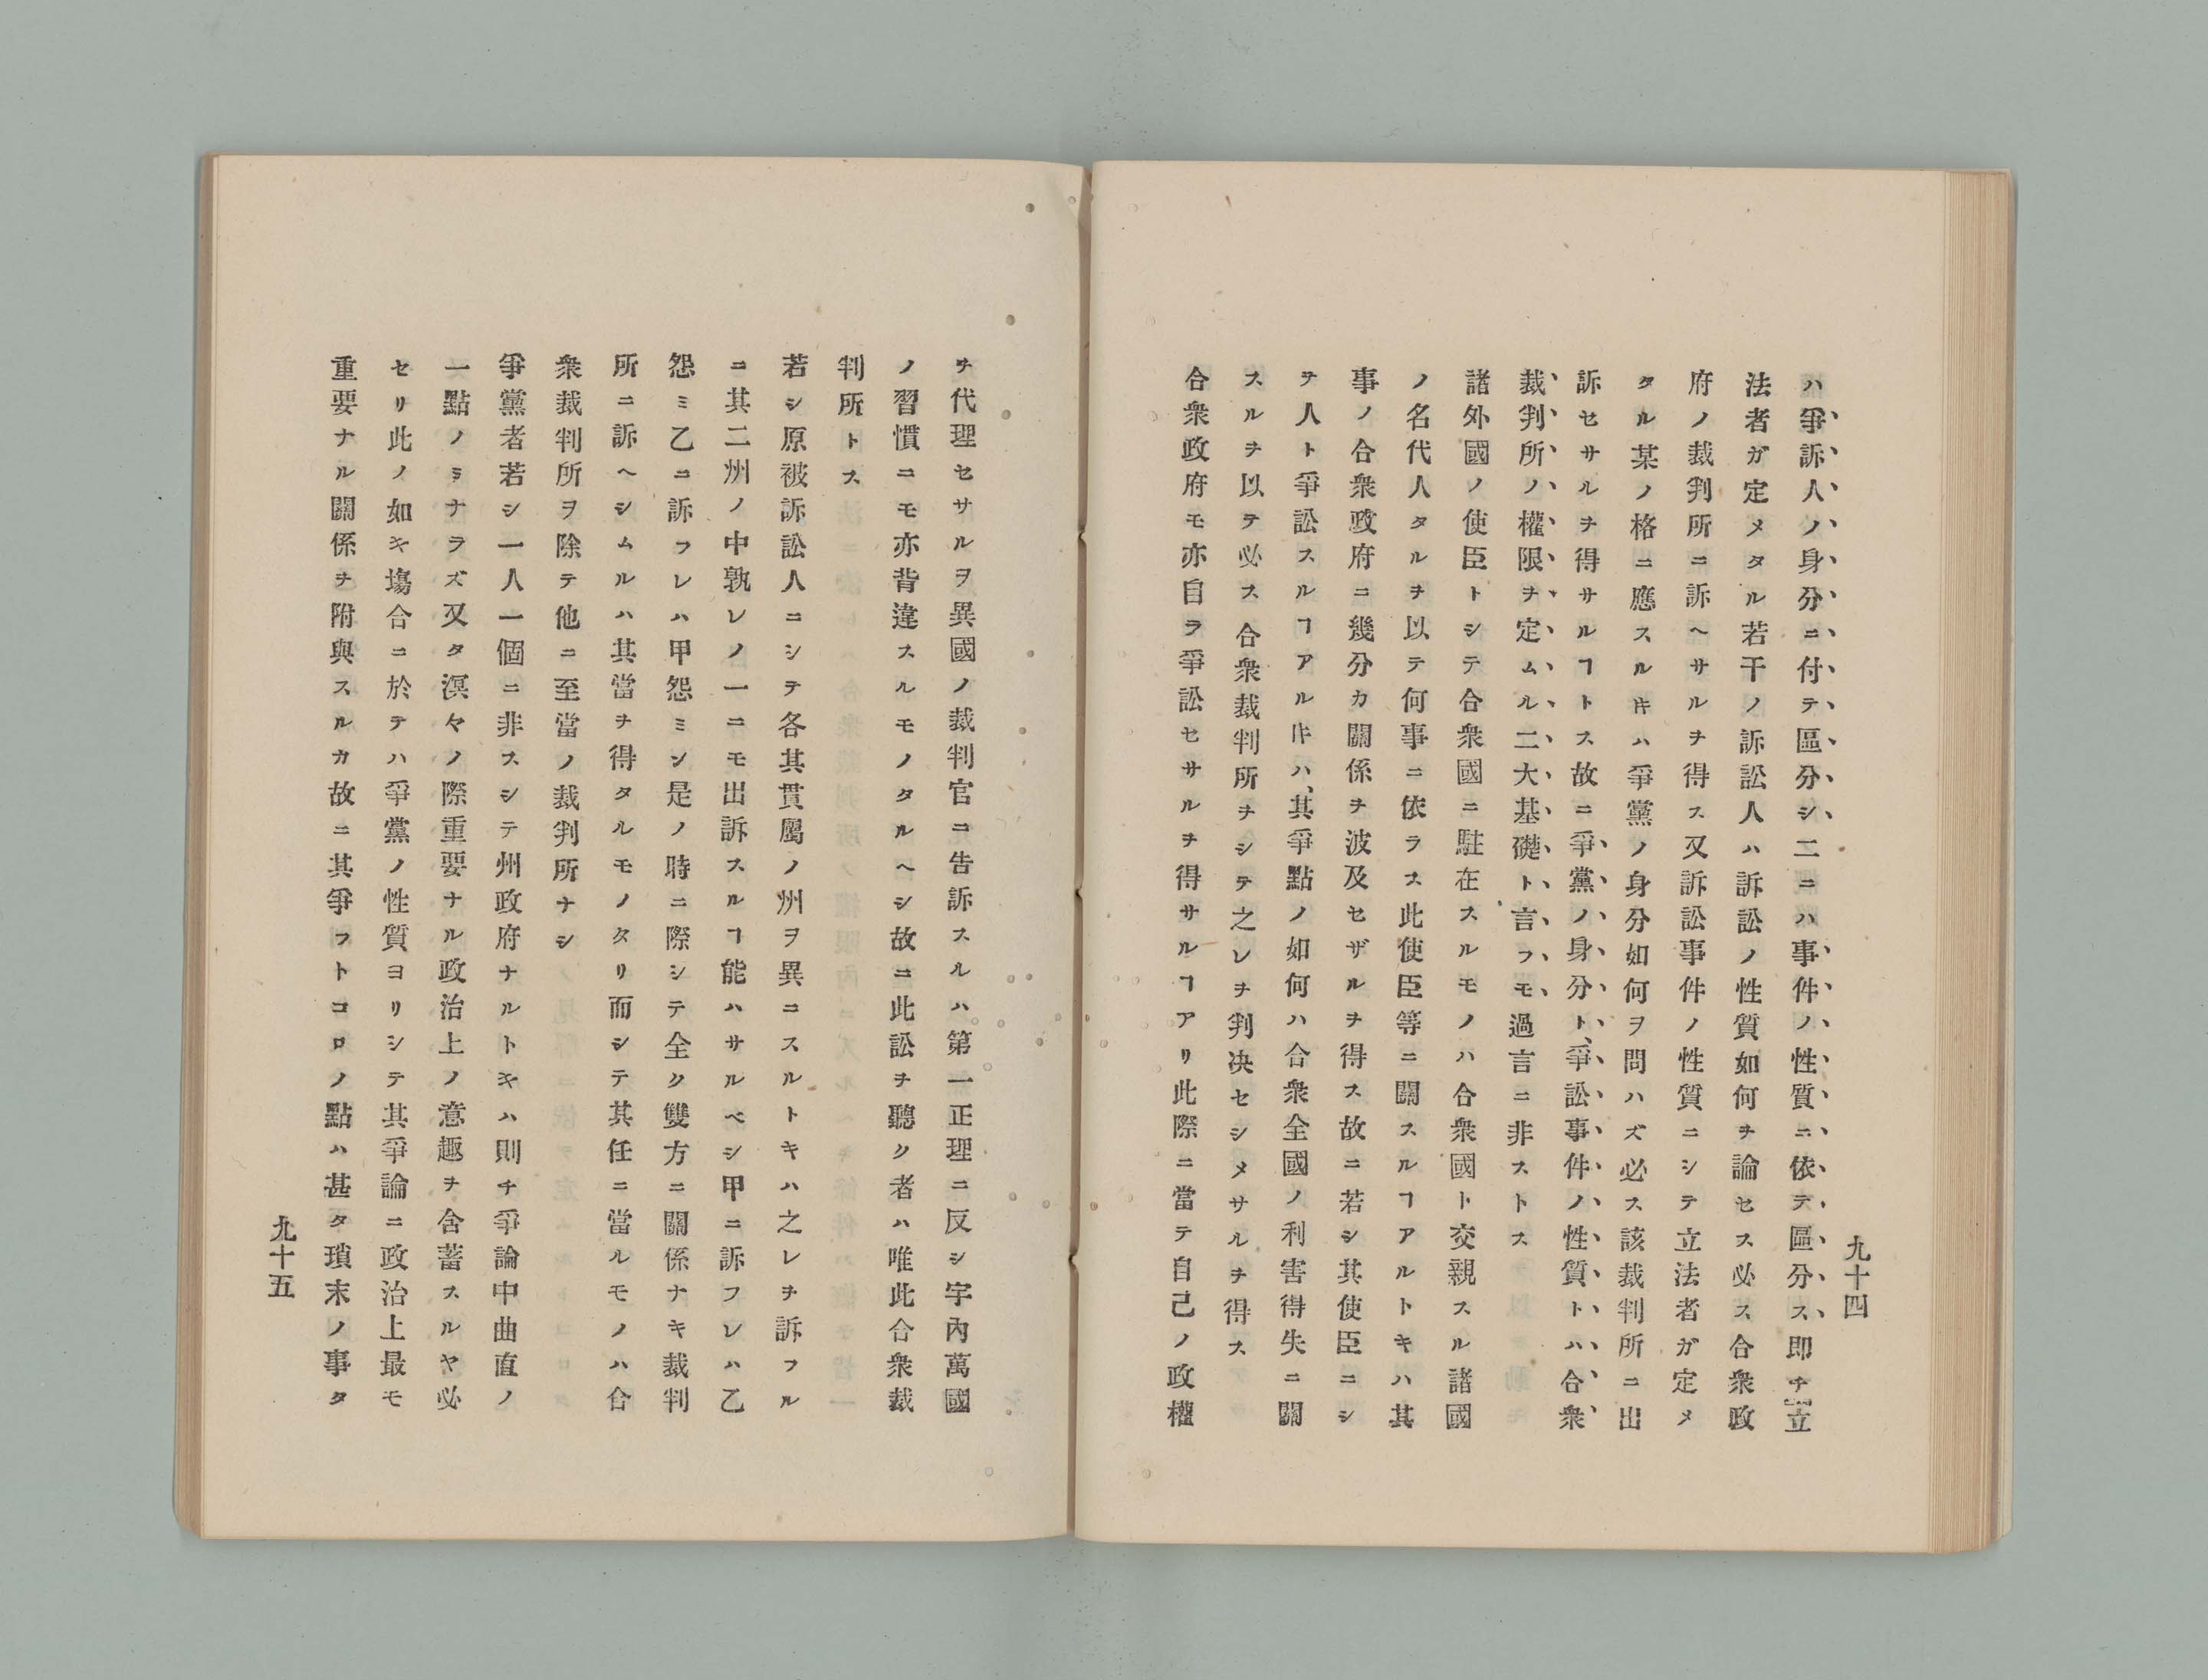 九十四
ハ爭訴人ノ身分ニ付テ區分シ二ニハ事件ノ性質ニ依テ區分ス即チ立
法者ガ定メタル若干ノ訴訟人ハ訴訟ノ性質如何ヲ論セス必ス合衆政
府ノ裁判所ニ訴ヘサルヲ得ス又訴訟事件ノ性質ニシテ立法者ガ定メ
タル某ノ格ニ應スルキハ爭黨ノ身分如何ヲ問ハズ必ス該裁判所ニ出
訴セサルヲ得サルヿトス故ニ爭黨ノ身分ト、爭訟事件ノ性質トハ合衆
裁判所ノ權限ヲ定ムル二大基礎ト言フモ過言ニ非ストス
諸外國ノ使臣トシテ合衆國ニ駐在スルモノハ合衆國ト交親スル諸國
ノ名代人タルヲ以テ何事ニ依ラス此使臣等ニ關スルヿアルトキハ其
事ノ合衆政府ニ幾分カ關係ヲ波及セザルヲ得ス故ニ若シ其使臣ニシ
テ人ト爭訟スルヿアルキハ、其爭點ノ如何ハ合衆全國ノ利害得失ニ關
スルヲ以テ必ス合衆裁判所ヲシテ之レヲ判决セシメサルヲ得ス
合衆政府モ亦自ラ爭訟セサルヲ得サルヿアリ此際ニ當テ自己ノ政權
ヲ代理セサルヲ異國ノ裁判官ニ告訴スルハ第一正理ニ反シ宇內萬國
ノ習慣ニモ亦背違スルモノタルヘシ故ニ此訟ヲ聽ク者ハ唯此合衆裁
判所トス
若シ原被訴訟人ニシテ各其貫屬ノ州ヲ異ニスルトキハ之レヲ訴フル
ニ其二州ノ中孰レノ一ニモ出訴スルヿ能ハサルベシ甲ニ訴フレハ乙
怨ミ乙ニ訴フレハ甲怨ミン是ノ時ニ際シテ全ク雙方ニ關係ナキ裁判
所ニ訴ヘシムルハ其當ヲ得タルモノタリ而シテ其任ニ當ルモノハ合
衆裁判所ヲ除テ他ニ至當ノ裁判所ナシ
爭黨者若シ一人一個ニ非スシテ州政府ナルトキハ則チ爭論中曲直ノ
一點ノミナラズ又タ溟々ノ際重要ナル政治上ノ意趣ヲ含蓄スルヤ必
セリ此ノ如キ塲合ニ於テハ爭黨ノ性質ヨリシテ其爭論ニ政治上最モ
重要ナル關係ヲ附與スルカ故ニ其爭フトコロノ點ハ甚タ瑣末ノ事タ
九十五